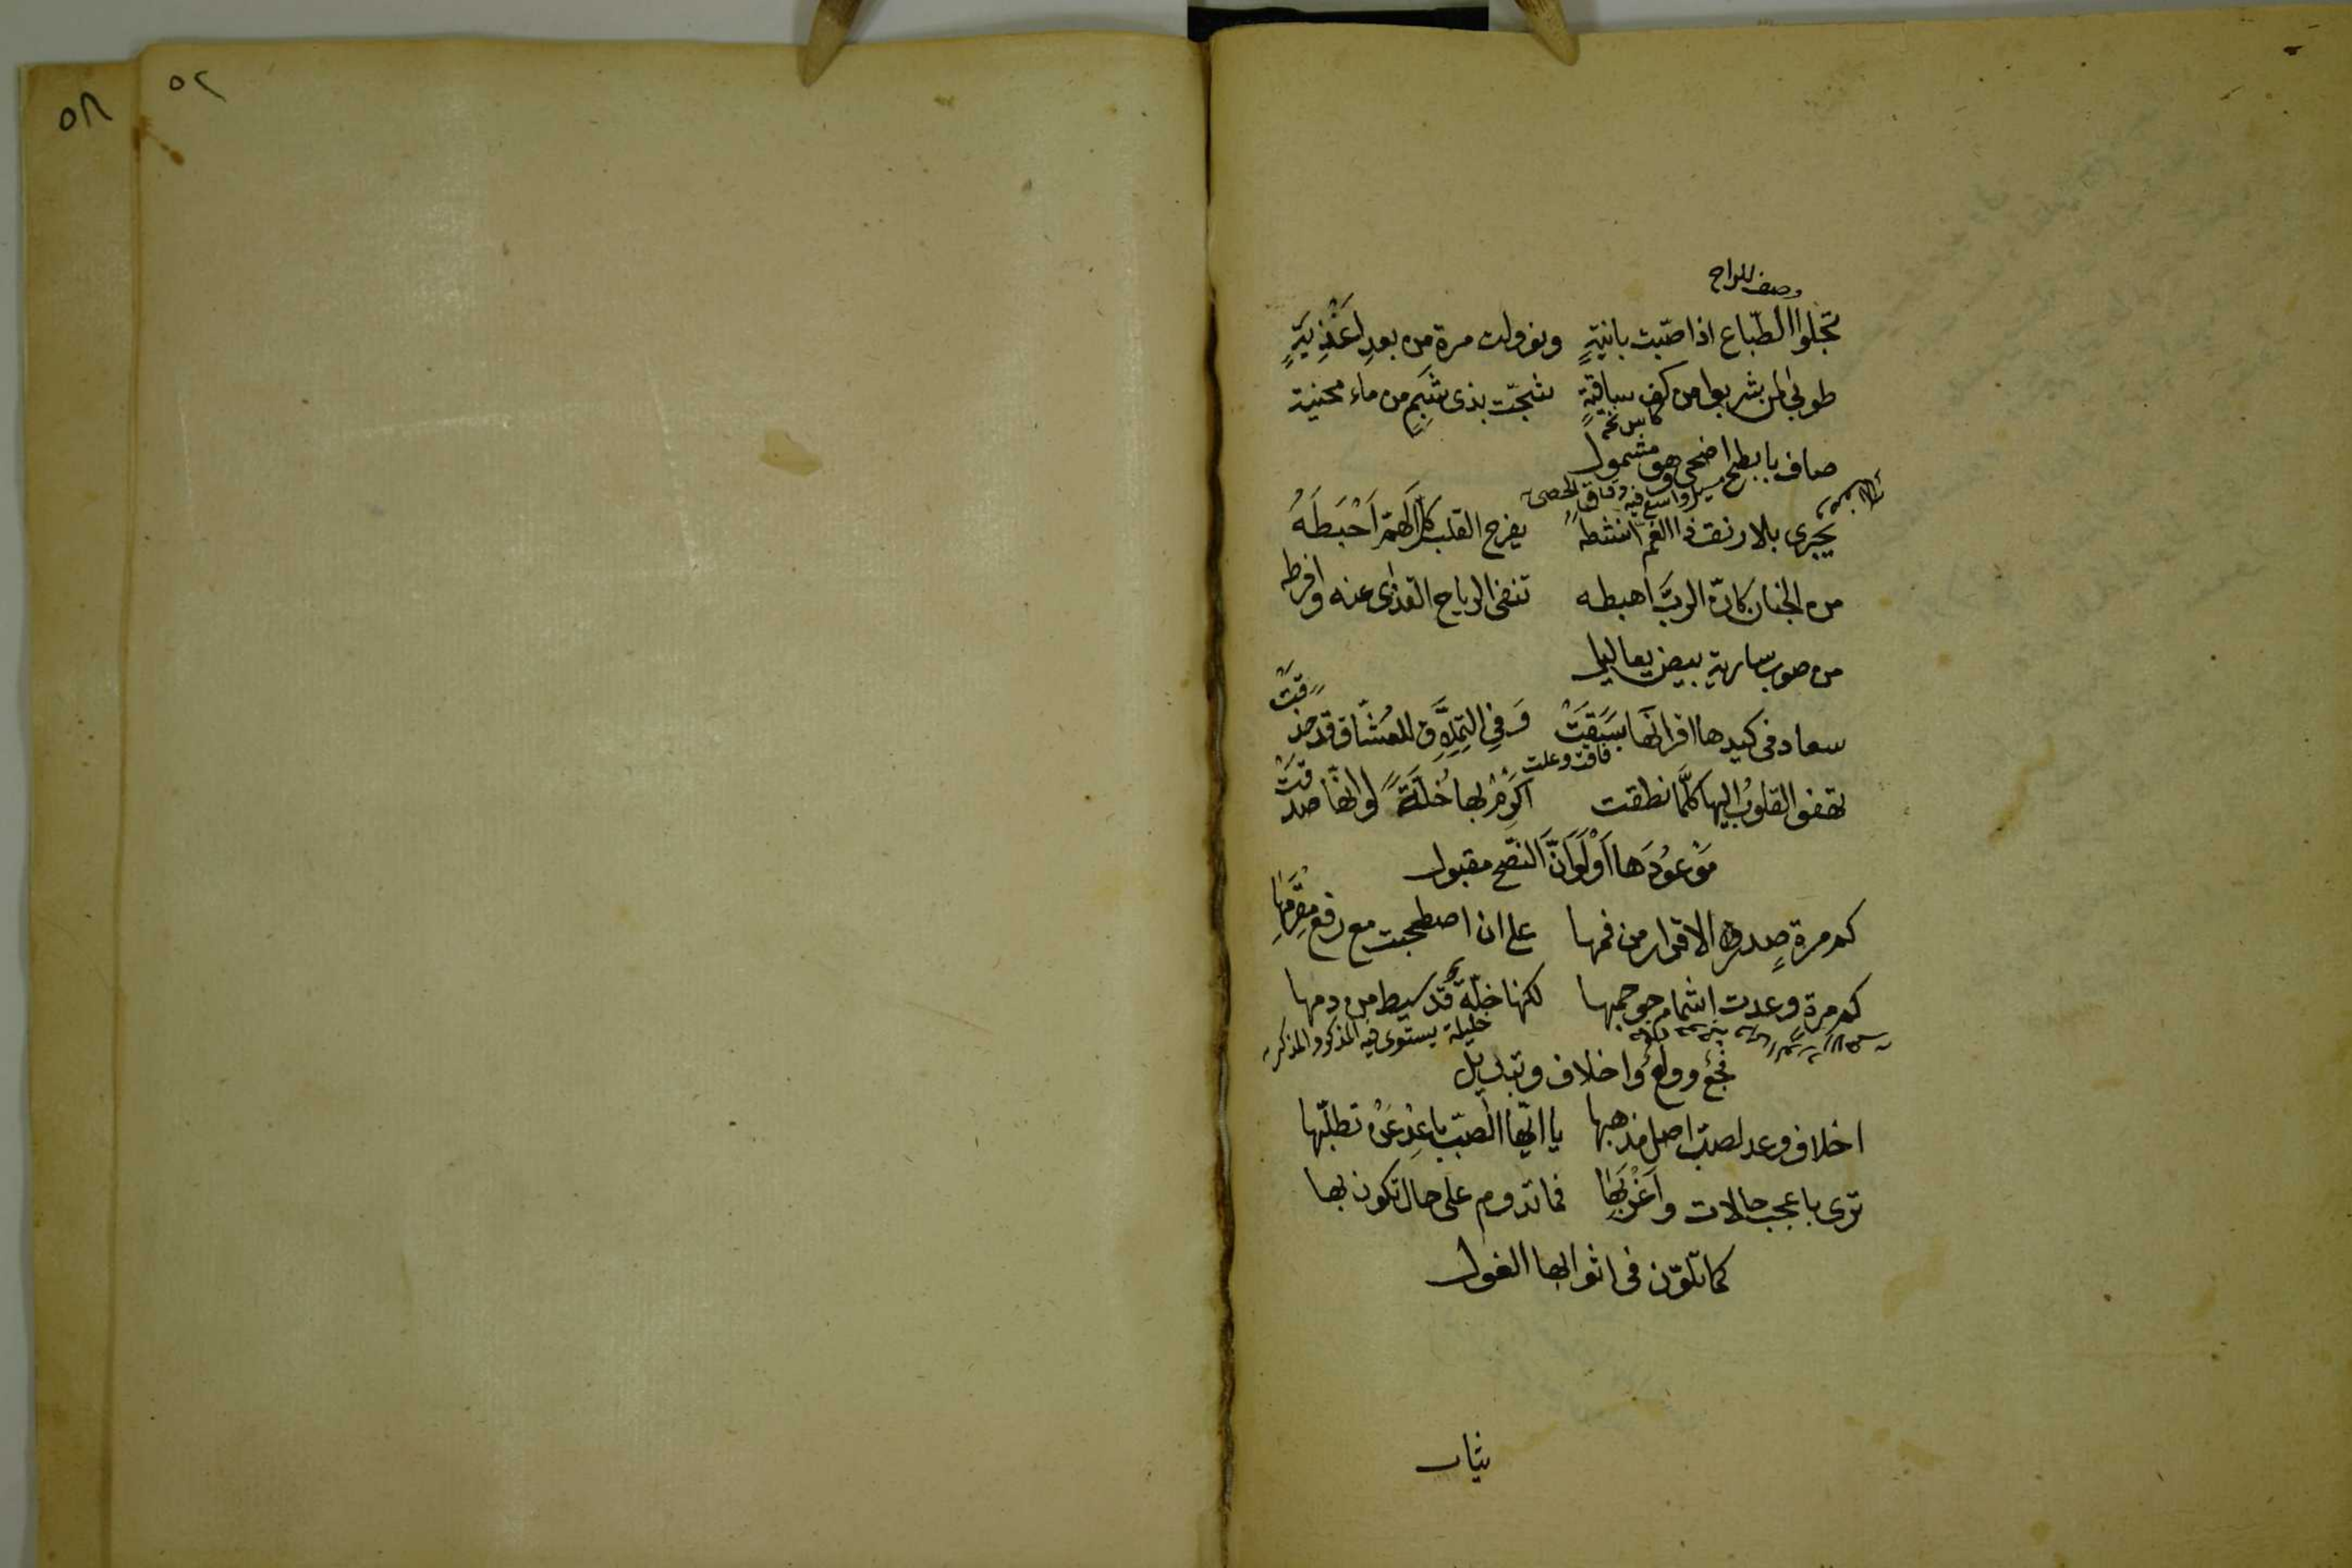 ٥٢
٥٨
وصف للراح
تجلوا الطّباع اذا صبّت بانيةٍ ولو ولت مرة من بعدِ لَغْذِيَةٍ
طوبى لمن بشربها من كف ساقيةٍ شجّت بذى شَبَمٍ من ماء محنية
كاس نخه
صاف بابطح اضحى وهو مشمول
مسيل واسع فيه دقاق الحصى
يجرى بلا رنق ذا الغم انشطه يفرح القلب كل الهمّ اَحْبَطَهُ
من الجنان كانّ الربّ اهبطه تنفى الرياح القذى عنه وافرطه
من صوب سارية بيض يعاليل
سعاد فى كيدها اقرانها سَبَقَتْ وَفِى التملّق للعشّاق قد حذقَتْ
فاقت وعلت
تهفو القلوبُ اليها كلّما نطقت اكرِمْ بها خُلّةً لو انها صدقَتْ
مَوْعُودَها اَوْ لَوَ اَنَّ النصْح مقبول
كم مرة صدر الاقرار من فمها على ان اصطحبت مع رفع
كم مرة وعدت اشمام لكنها خلّةٌ قد سيط من دمها
خليلة يستوى فيه المذكر و
فجعٌ وولعٌ واخلاف وتبديل
اخلاف وعد لصبّ اصل مذهبها يا ايّها الصّبّ باعِدْ عَنْ تطلّبها
ترى باعجب حالات واَغْرَبِها فما تدوم على حال تكون بها
كما تلوّن فى اثوابها الغول